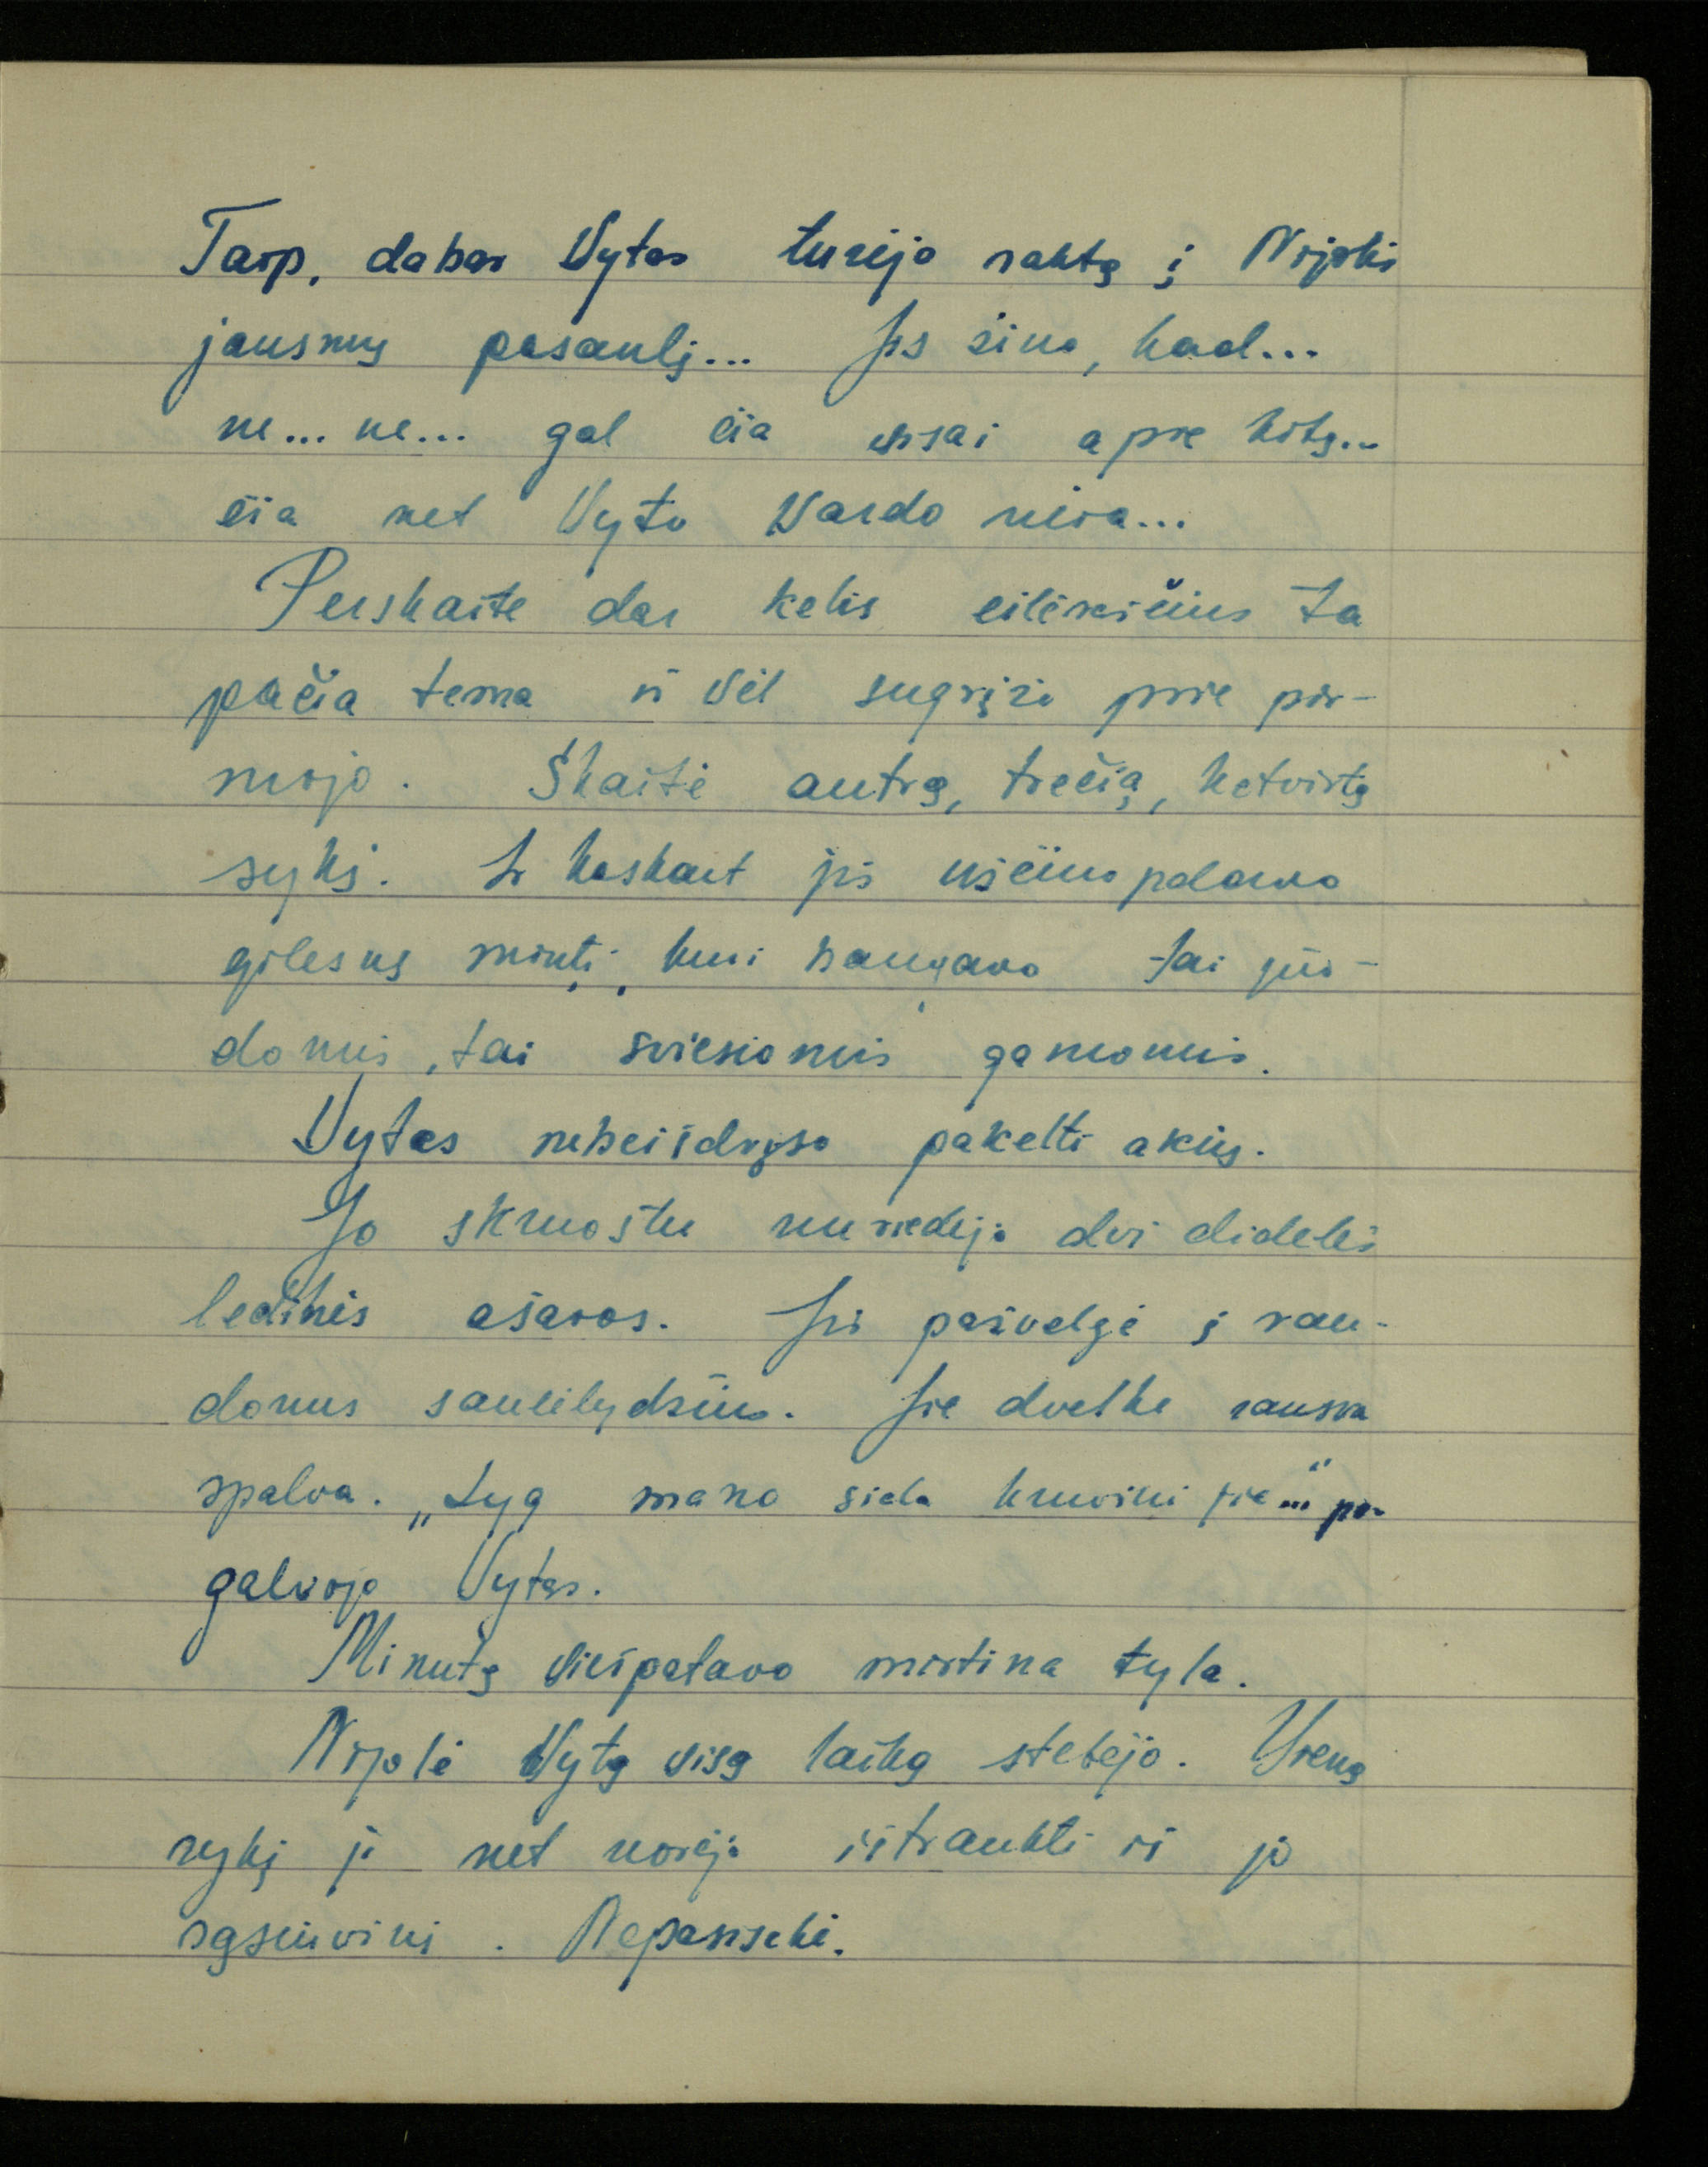 Taip, dabar Vytas turėjo raktą į Nijolės
jausmų pasaulį... Jis žino, kad...
ne... ne... gal čia visai apie kitą...
čia net Vyto vardo nėra...
Perskaitė dar kelis eilėraščius ta
pačia tema ir vėl sugrįžo prie pir-
mojo. Skaitė antrą, trečią, ketvirtą
sykį. Ir kaskart jis užčiuopdavo
gilesnę mintį, kuri bangavo tai juo-
domis, tai šviesiomis gamomis.
Vytas nebeišdrįso pakelti akių.
Jo skruostu nuriedėjo dvi didelės
ledinės ašaros. Jis pažvelgė į rau-
donus saulėlydžius. Jie dvelkė rausva
spalva. „Lyg mano siela kruvini jie...“ pa-
galvojo Vytas.
Minutę viešpatavo mirtina tyla.
Nijolė Vytą visą laiką stebėjo. Vieną
sykį ji net norėjo ištraukti iš jo
sąsiuvinį. Nepasisekė.